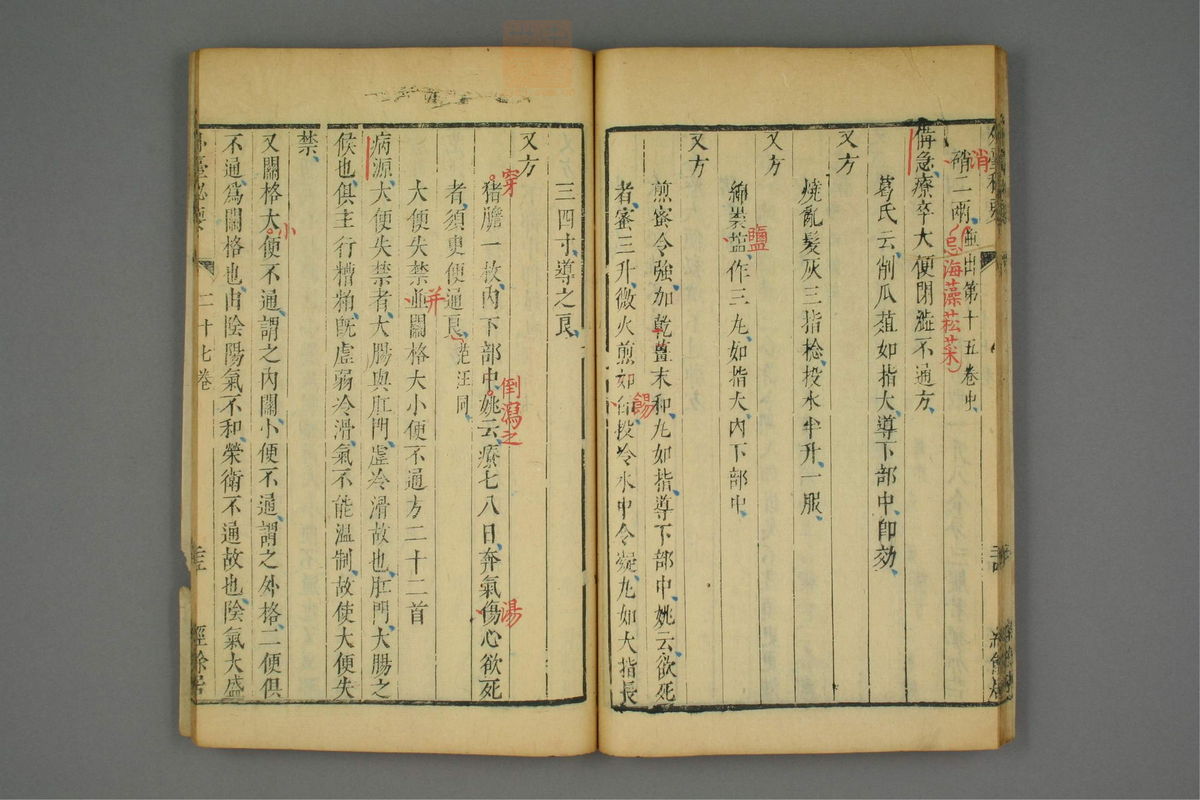 硝二兩 並出第十五卷中
消
忌海藻菘菜
備急療卒大便閉澁不通方
葛氏云削瓜菹如指大導下部中即効
又方
燒亂髮灰三指捻投水半升一服
又方
綿裹塩作三丸如指大內下部中
鹽
又方
煎蜜令強加乾薑末和丸如指導下部中姚云欲死
者蜜三升微火煎如投冷水中令凝丸如大指長
餳
三四寸導之良
又方
猪膽一枚內下部中姚云療七八日奔氣傷心欲死
穿
倒瀉之
湯
者須臾便通良范汪同
大便失禁並關格大小便不通方二十二首
并
病源大便失禁者大腸與肛門虛冷滑故也肛門大腸之
候也俱主行糟粕既虛弱冷滑氣不能溫制故使大便失
禁
又關格大便不通謂之內關小便不通謂之外格二便俱
小
不通爲關格也由陰陽氣不和榮衛不通故也陰氣大盛
外臺秘要
二十七卷
經餘居